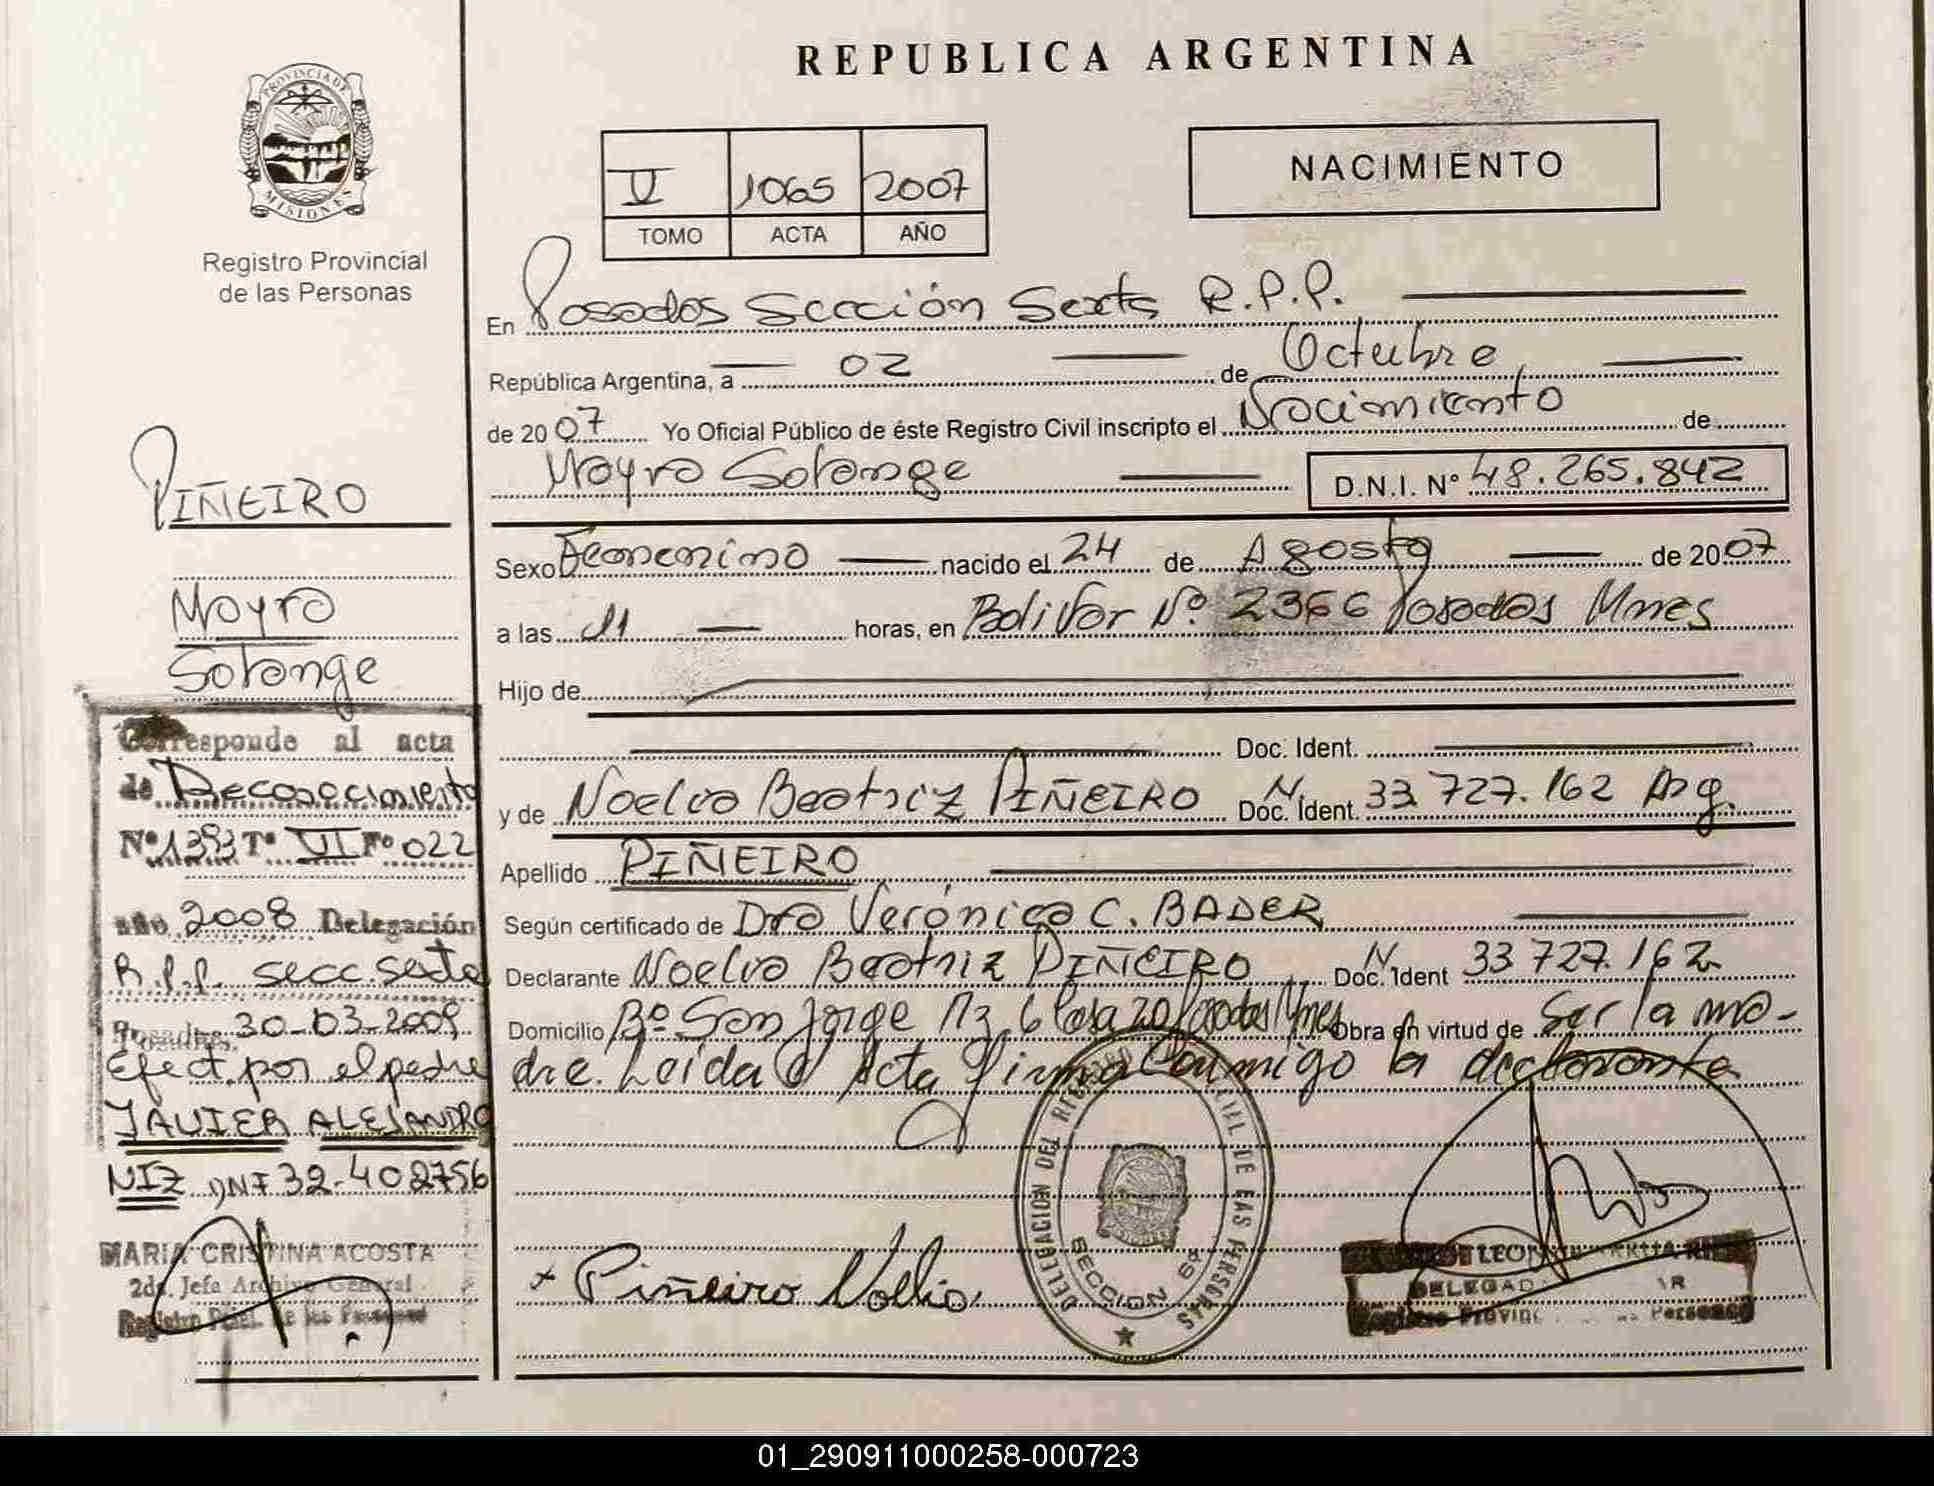 PROVINCIA DE
MISIONES
Registro Provincial
de las Personas
REPUBLICA ARGENTINA
V 1065 2007
TOMO ACTA AÑO
NACIMIENTO
En Posadas Sección Sexta R.P.P.
República Argentina, a 02 de Octubre
de 2007 Yo Oficial Público de éste Registro Civil inscripto el Nacimiento de
Mayra Solange D.N.I. N° 48.265.842
Sexo Femenino nacido el 24 de Agosto de 2007
a las 11 horas, en Bolivar N° 2366 Posadas Mnes
Hijo de
Doc. Ident.
y de Noelia Beatriz PIÑEIRO Doc. N. Ident. 33.727.162 Arg.
Apellido PIÑEIRO
Según certificado de Dra Verónica C. BADER
Declarante Noelia Beatriz PIÑEIRO Doc. N. Ident 33.727.162
Domicilio B° San Jorge Mz 6 Casa 20 Posadas Mnes Obra en virtud de Ser la ma-
dre. Leída el Acta firma Conmigo la declarante
x Piñeiro Noelia.
DELEGACION DEL DE LAS PERSONAS
SECCION 6ª
LEON
DELEGAD
Personas
PIÑEIRO
Mayra
Solange
Corresponde al acta
de Reconocimiento
N° 1393 T° VI F° 022
año 2008 Delegación
R.P.P. secc. sexta
Posadas, 30-03-2009
Efect. por el padre
JAVIER ALEJANDRO
NIZ DNI 32.402756
MARIA CRISTINA ACOSTA
2da. Jefe Archivo General
Registro Pcial. de las Personas
01_290911000258-000723